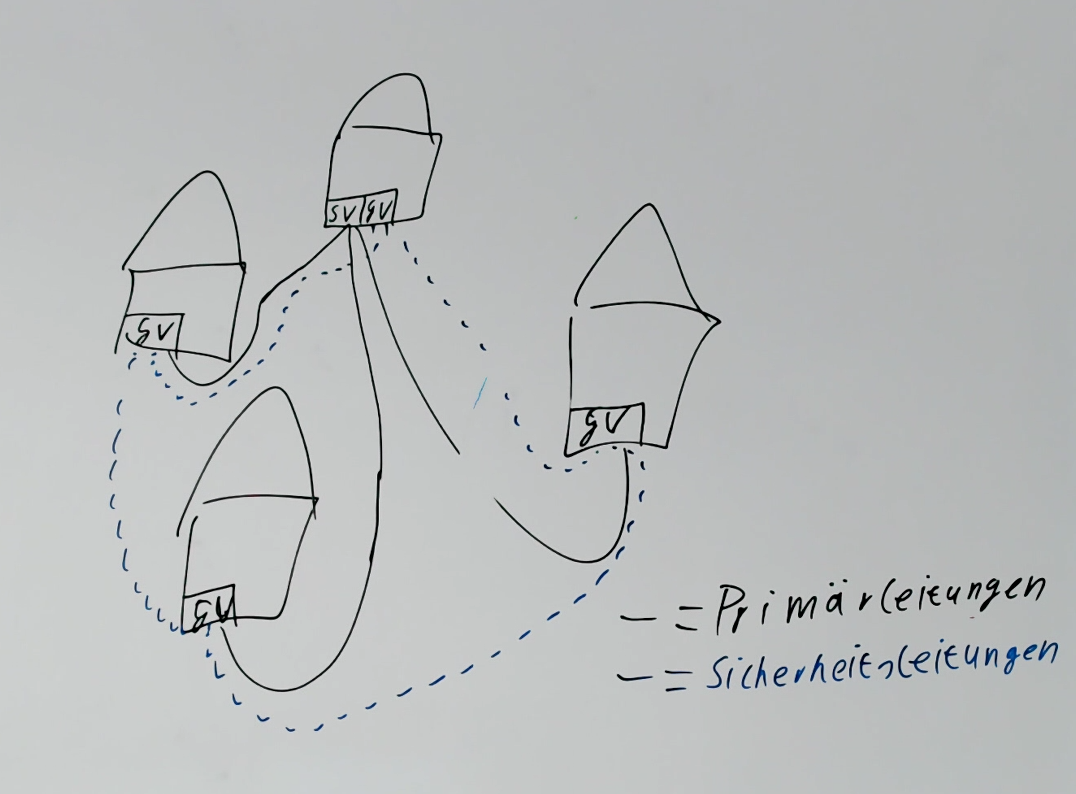 SV GV
GV
GV
GV
— = Primärleitungen
— = Sicherheitsleitungen